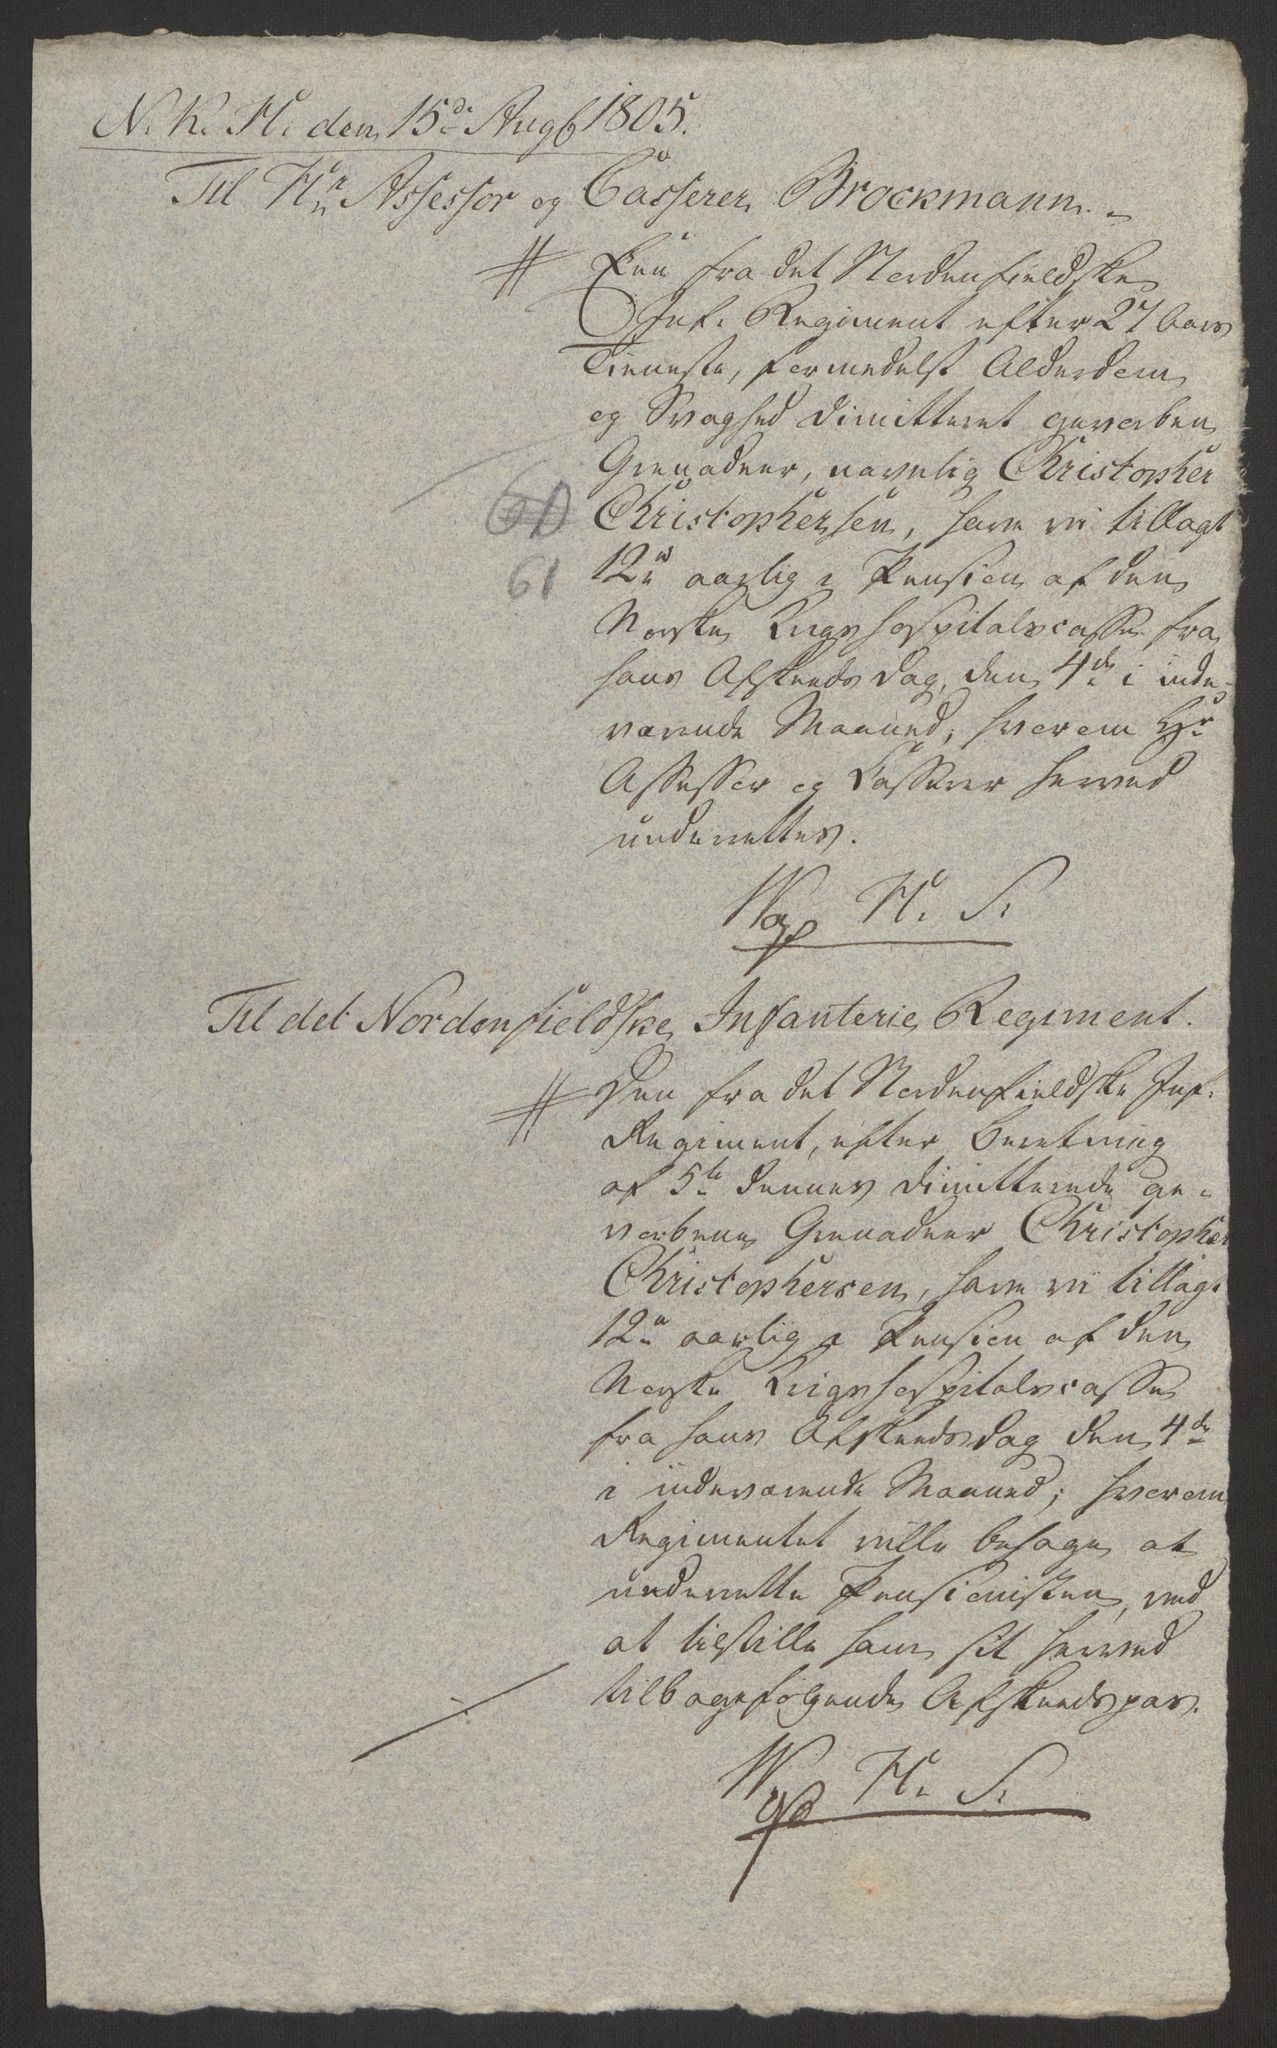 N. K. H. den 15de Augs 1805.
Til Hr Assessor og Casserer Brockmann.
# Een fra det Nordenfieldske
Inf. Regiment efter 27 Aars
Tieneste, formedelst Alderdom
og Svaghed dimitteret gevorben
Grenadeer, navnlig Christopher
Christophersen, have vi tillagt
61
12 rd aarlig i Pension af den
Norske Krigshospitalscasse fra
hans Afskeeds Dag, den 4de i inde-
værende Maaned; hvorom Hr
Assessor og Casserer herved
underrettes.
H. S.
Til det Nordenfieldske Infanterie Regiment.
# Den fra det Nordenfieldske Inf.
Regiment, efter Beretning
af 5te dennes dimitterede ge-
vorbene Grenadeer Christopher
Christophersen, have vi tillagt
12 rd aarlig i Pension af den
Norske Krigshospitalscasse
fra hans Afskeedsdag den 4de
i indeværende Maaned; hvorom
Regimentet ville behage at
underrette Pensionisten, ved
at tilstille ham sit herved
tilbagefølgende Afskeedspas.
H. S.